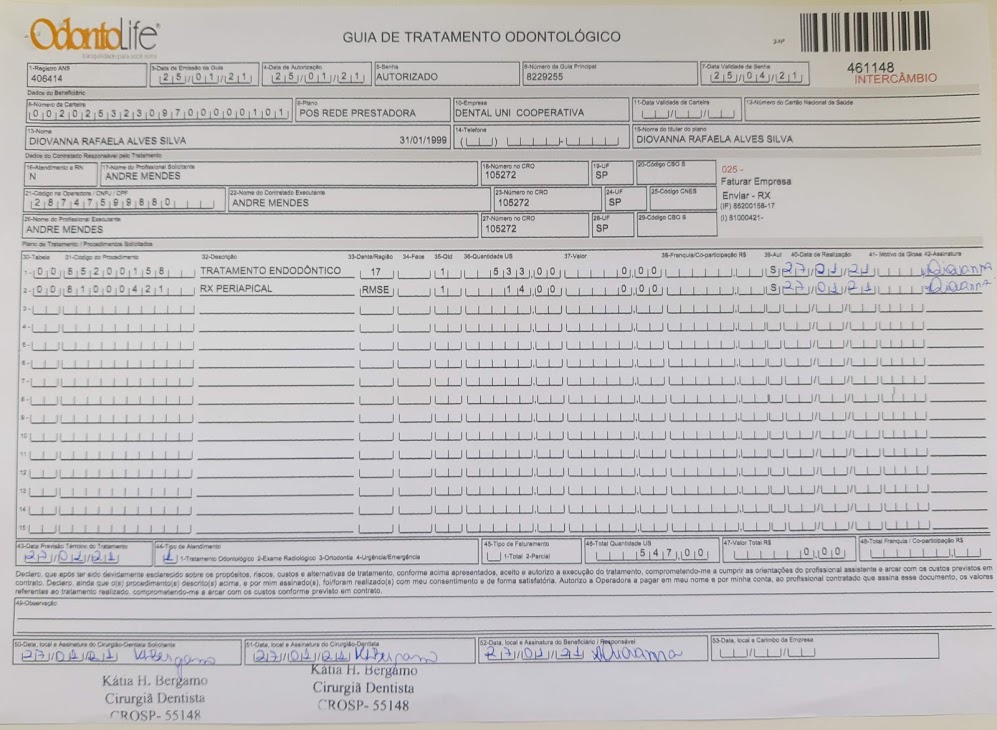 OdontoLife®
tranquilidade para você sorrir
GUIA DE TRATAMENTO ODONTOLÓGICO
461148
INTERCÂMBIO
1-Registro ANS
406414
3-Data de Emissão da Guia
25/01/21
4-Data de Autorização
25/01/21
5-Senha
AUTORIZADO
6-Número da Guia Principal
8229255
7-Data Validade da Senha
25/04/21
Dados do Beneficiário
8-Número da Carteira
00202532309700000101
9-Plano
POS REDE PRESTADORA
10-Empresa
DENTAL UNI COOPERATIVA
11-Data Validade da Carteira
12-Número do Cartão Nacional de Saúde
13-Nome
DIOVANNA RAFAELA ALVES SILVA 31/01/1999
14-Telefone
15-Nome do titular do plano
DIOVANNA RAFAELA ALVES SILVA
Dados do Contratado Responsável pelo Tratamento
16-Atendimento a RN
N
17-Nome do Profissional Solicitante
ANDRE MENDES
18-Número no CRO
105272
19-UF
SP
20-Código CBO S
025 -
Faturar Empresa
Enviar - RX
(IF) 85200158-17
(I) 81000421-
21-Código na Operadora / CNPJ / CPF
28747599880
22-Nome do Contratado Executante
ANDRE MENDES
23-Número no CRO
105272
24-UF
SP
25-Código CNES
26-Nome do Profissional Executante
ANDRE MENDES
27-Número no CRO
105272
28-UF
SP
29-Código CBO S
Plano de Tratamento / Procedimentos Solicitados
30-Tabela 31-Código do Procedimento 32-Descrição 33-Dente/Região 34-Face 35-Qtd 36-Quantidade US 37-Valor 38-Franquia/Co-participação R$ 39-Aut 40-Data de Realização 41- Motivo da Glosa 42-Assinatura
1- 00 85200158 TRATAMENTO ENDODÔNTICO 17 1 533,00 0,00 S 27/01/21 Diovanna
2- 00 81000421 RX PERIAPICAL RMSE 1 14,00 0,00 S 27/01/21 Diovanna
3-
4-
5-
6-
7-
8-
9-
10-
11-
12-
13-
14-
15-
43-Data Previsão Término do Tratamento
27/01/21
44-Tipo de Atendimento
1 1-Tratamento Odontológico 2-Exame Radiológico 3-Ortodontia 4-Urgência/Emergência
45-Tipo de Faturamento
1-Total 2-Parcial
46-Total Quantidade US
547,00
47-Valor Total R$
0,00
48-Total Franquia / Co-participação R$
Declaro, que após ter sido devidamente esclarecido sobre os propósitos, riscos, custos e alternativas de tratamento, conforme acima apresentados, aceito e autorizo a execução do tratamento, comprometendo-me a cumprir as orientações do profissional assistente e arcar com os custos previstos em
contrato. Declaro, ainda que o(s) procedimento(s) descrito(s) acima, e por mim assinado(s), foi/foram realizado(s) com meu consentimento e de forma satisfatória. Autorizo a Operadora a pagar em meu nome e por minha conta, ao profissional contratado que assina esse documento, os valores
referentes ao tratamento realizado, comprometendo-me a arcar com os custos conforme previsto em contrato.
49-Observação
50-Data, local e Assinatura do Cirurgião-Dentista Solicitante
27/01/21 KBergamo
51-Data, local e Assinatura do Cirurgião-Dentista
27/01/21 KBergamo
52-Data, local e Assinatura do Beneficiário / Responsável
27/01/21 Diovanna
53-Data, local e Carimbo da Empresa
Kátia H. Bergamo
Cirurgiã Dentista
CROSP- 55148
Kátia H. Bergamo
Cirurgiã Dentista
CROSP- 55148